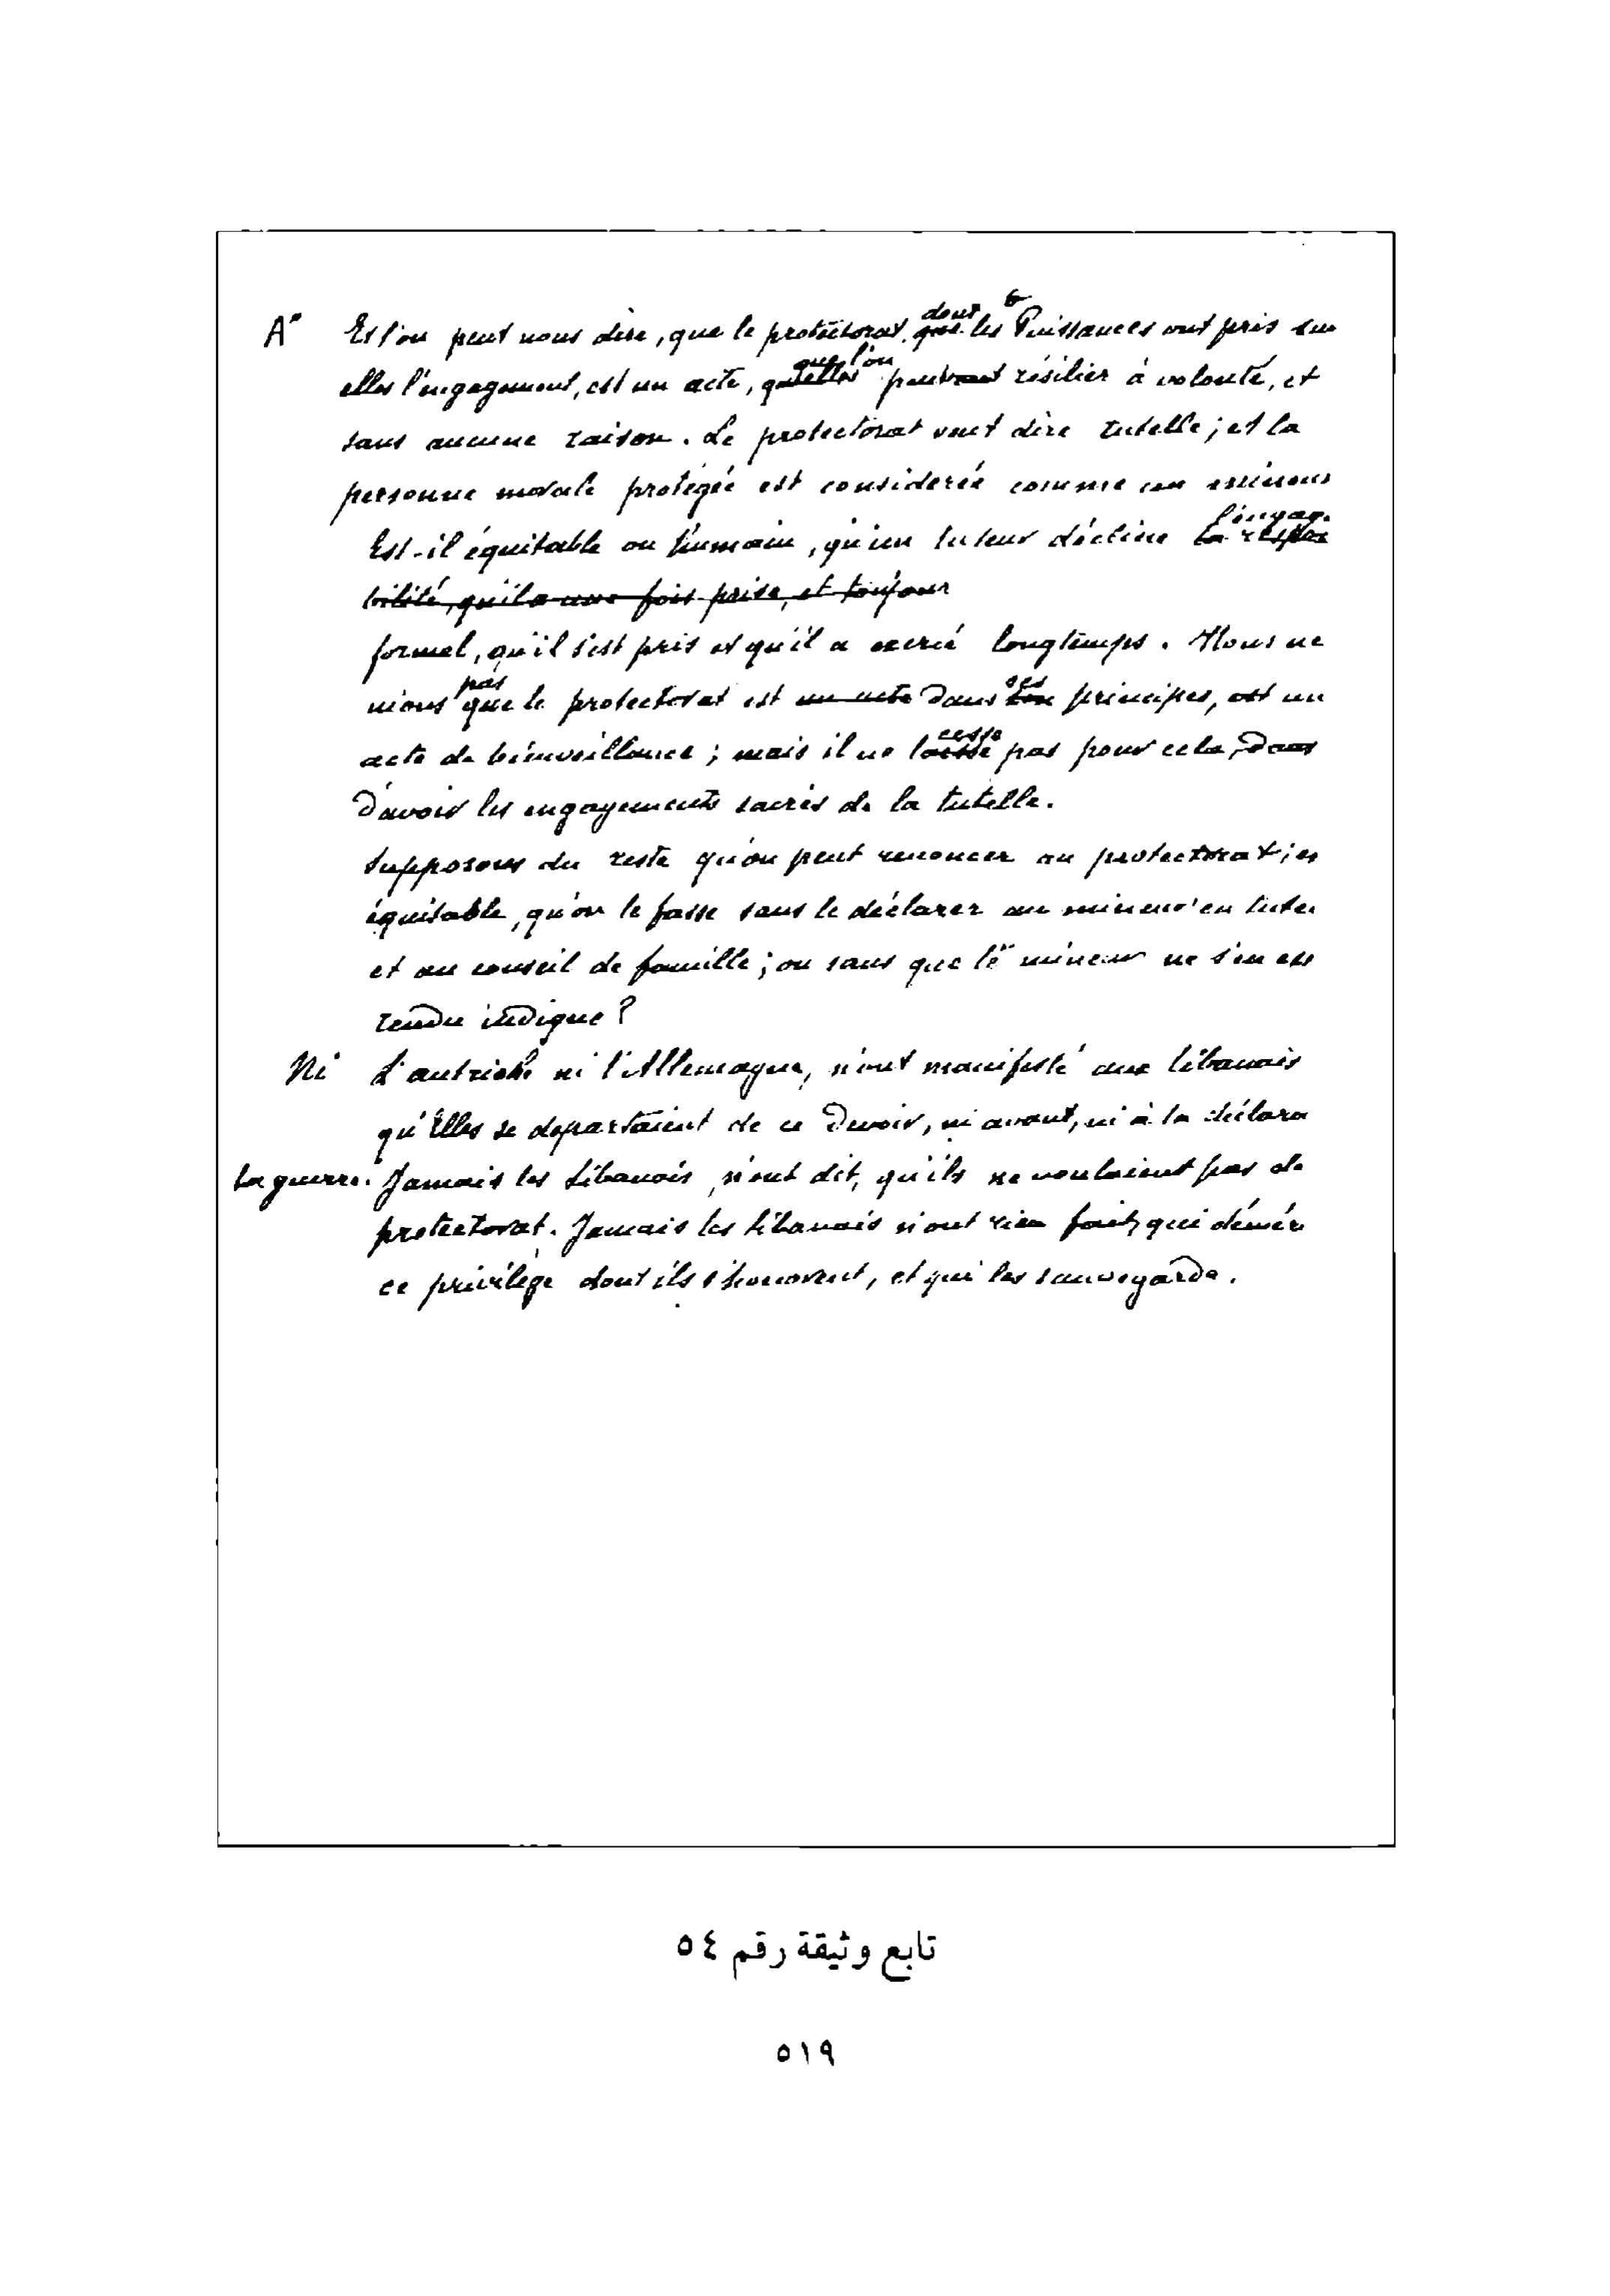 A° Et l'on peut nous dire, que le protectorat dont 6 que les Puissances ont pris sur
elles l'engagement, est un acte, qu'elles que l'on peuvent résilier à volonté, et
sans aucune raison. Le protectorat veut dire tutelle ; et la
personne morale protégée est considerée comme un mineur
Est-il équitable ou humain, qu'un tuteur décline l'engag. la respon
bilité, qu'il a une fois prise, et toujour
formel, qu'il s'est pris et qu'il a exercé longtemps. Nous ne
nions pas que le protectorat est un acte dans ses son principes, est un
acte de bienveillance ; mais il ne cesse laisse pas pour cela, dans
d'avoir les engagements sacrés de la tutelle.
Supposons du reste qu'on peut renoncer au protectorat ; es
équitable, qu'on le fasse sans le déclarer au mineur en tute.
et au conseil de famille ; ou sans que le mineur ne s'en es
rendu indigne ?
Ni L'autriche ni l'Allemagne, n'ont manifesté aux libanais
qu'Elles se departaient de ce devoir, ni avant, ni à la déclara
la guerre. Jamais les Libanais n'ont dit, qu'ils ne voulaient pas de
protectorat. Jamais les libanais n'ont rien fait, qui démér
ce privilège dont ils s'honorent, et qui les sauvegarde.
تابع وثيقة رقم ٥٤
٥١٩